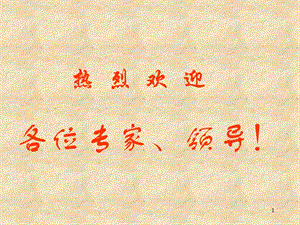 热烈欢迎
各位专家、领导!
1